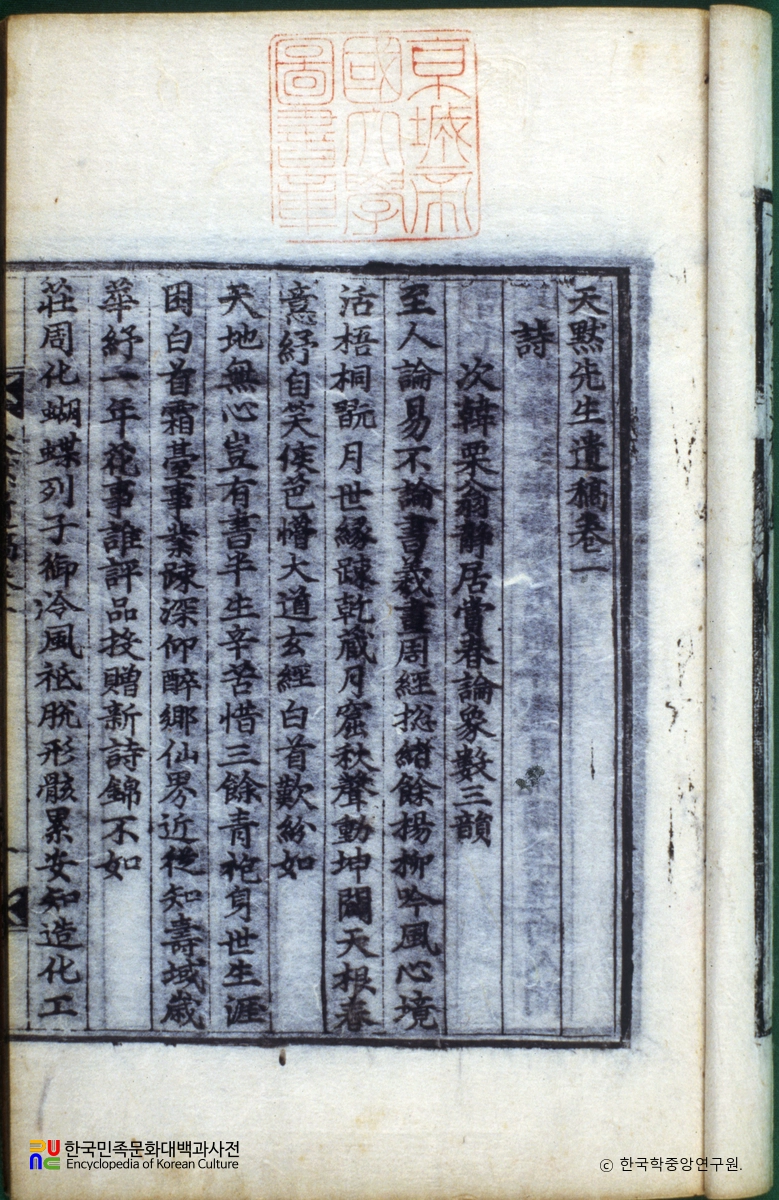 京城帝
國大學
圖書章
天默先生遺稿卷一
詩
次韓栗翁靜居賞春論象數三韻
至人論易不論書羲畫周經揔緒餘楊柳吟風心境
活梧桐翫月世緣踈乾藏月窟秋聲動坤闢天根春
意紓自笑侯芭憎大道玄經白首歎紛如
天地無心豈有書半生辛苦惜三餘靑袍身世生涯
困白首霜臺事業踈深仰醉鄕仙界近從知壽域歲
華紓一年花事誰評品投贈新詩錦不如
莊周化蝴蝶列子御冷風祗脫形骸累安知造化工
한국민족문화대백과사전
Encyclopedia of Korean Culture
ⓒ 한국학중앙연구원.